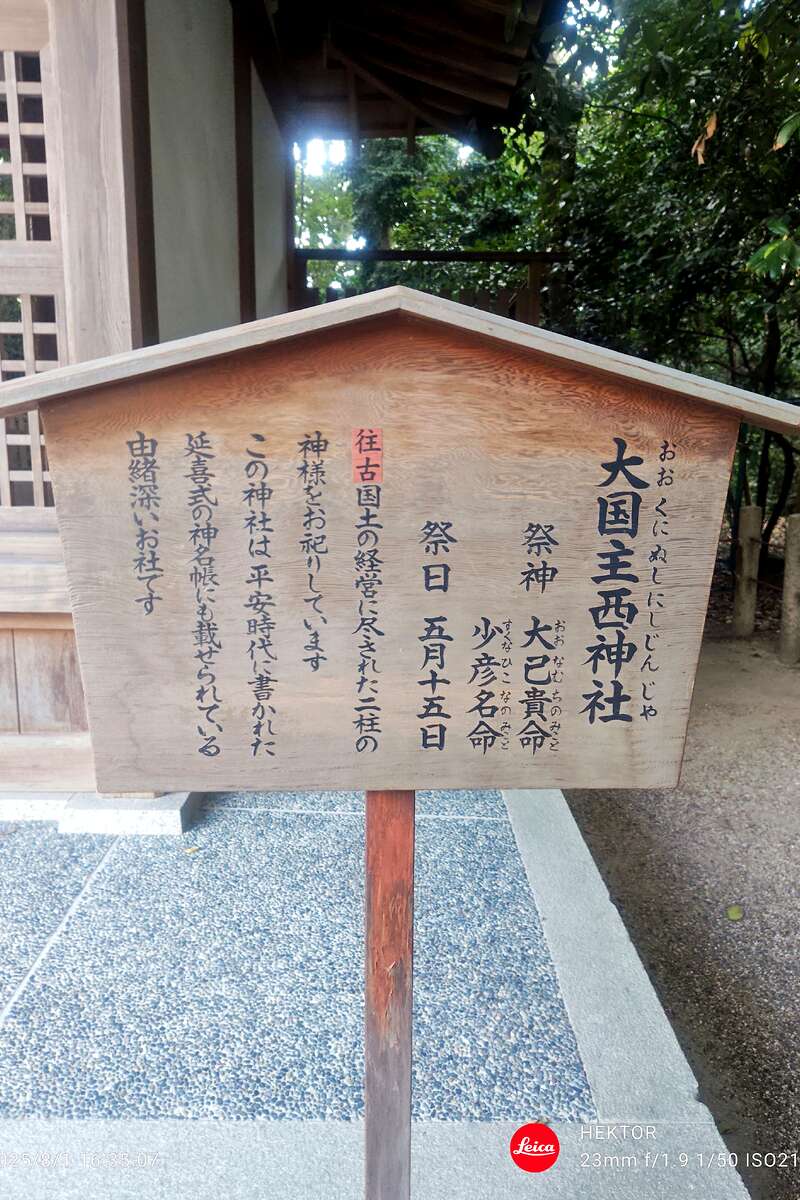 おおくにぬしにしじんじゃ
大国主西神社
祭神 大己貴命
おおなむちのみこと
少彦名命
すくなひこなのみこと
祭日 五月十五日
往古国土の経営に尽された二柱の
神様をお祀りしています
この神社は平安時代に書かれた
延喜式の神名帳にも載せられている
由緒深いお社です
025/8/1 16:35:07
Leica
HEKTOR
23mm f/1.9 1/50 ISO21